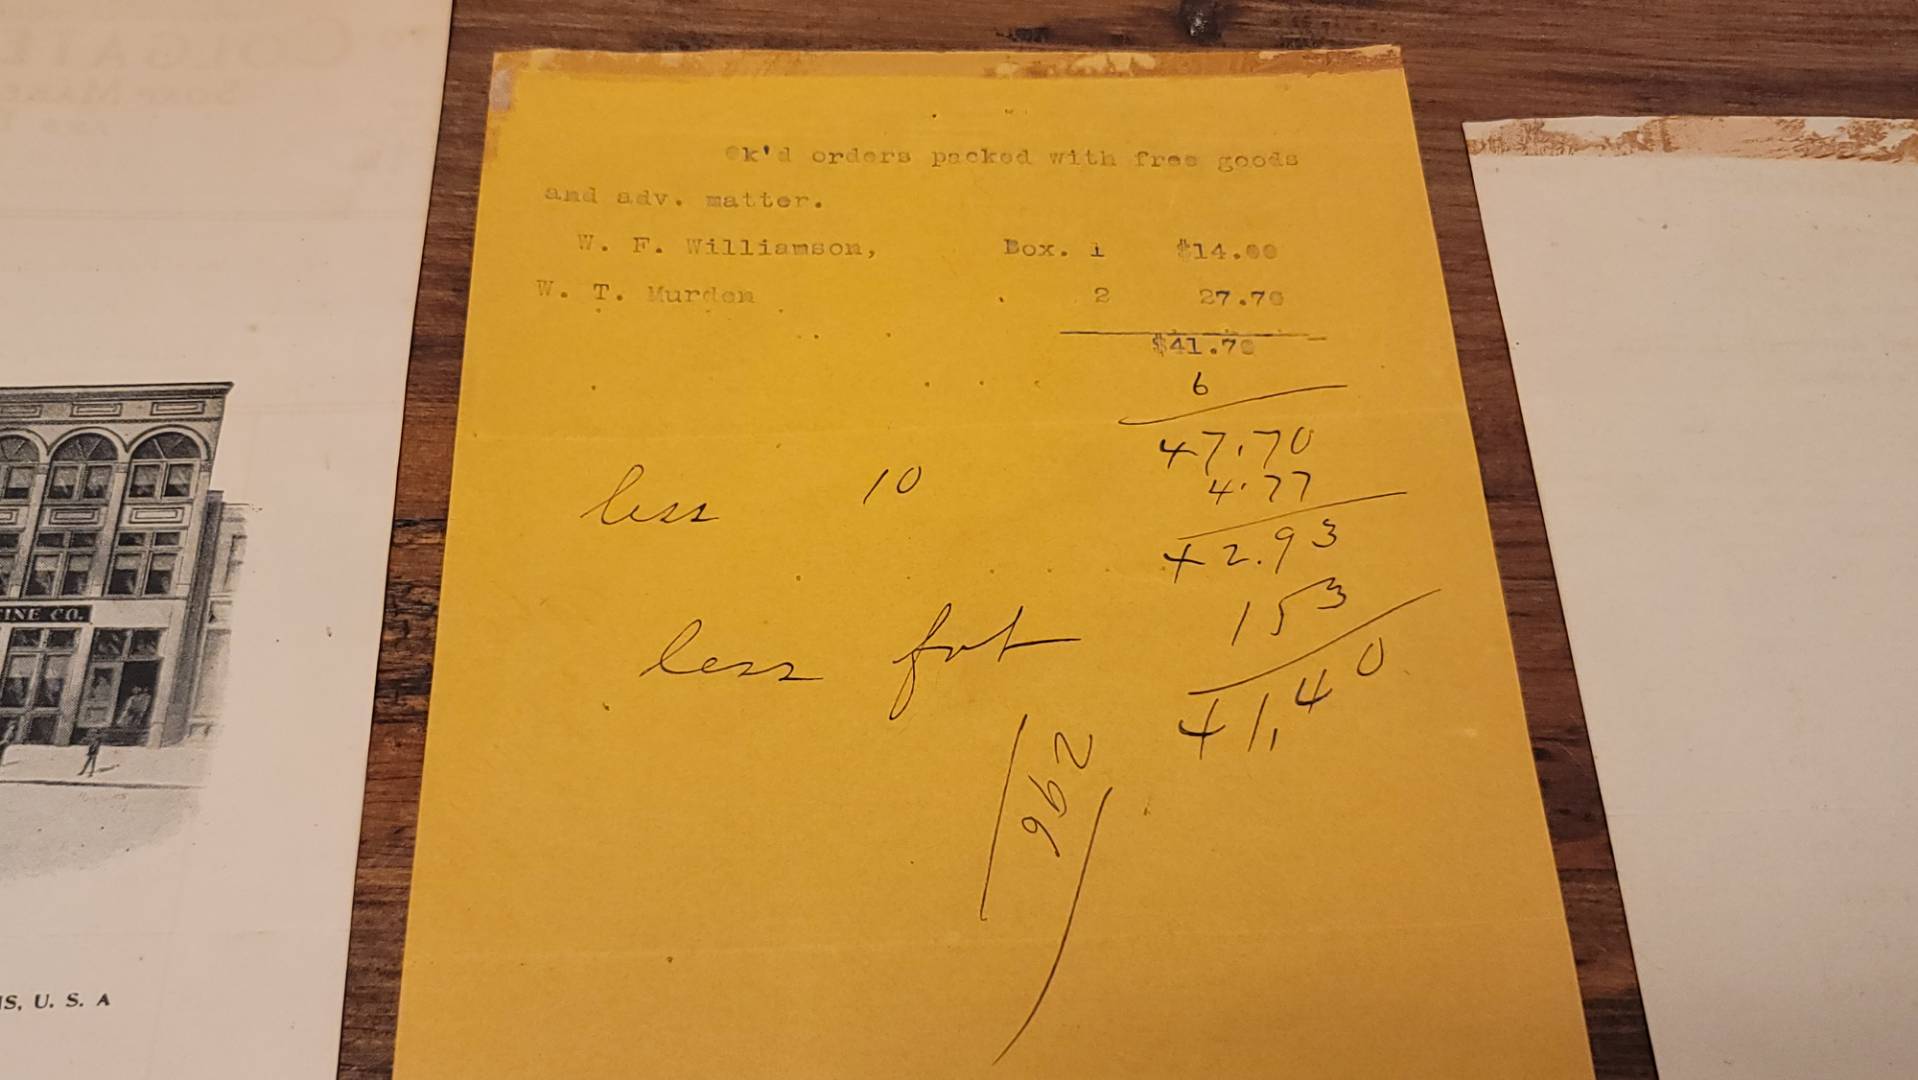 COLGATE
SOAP MAKE
ok'd orders packed with free goods
and adv. matter.
W. F. Williamson, Box. 1 $14.00
W. T. Murden 2 27.70
$41.70
6
47.70
less 10 4.77
42.93
less frt 153
41,40
962
INE CO.
IS, U. S. A